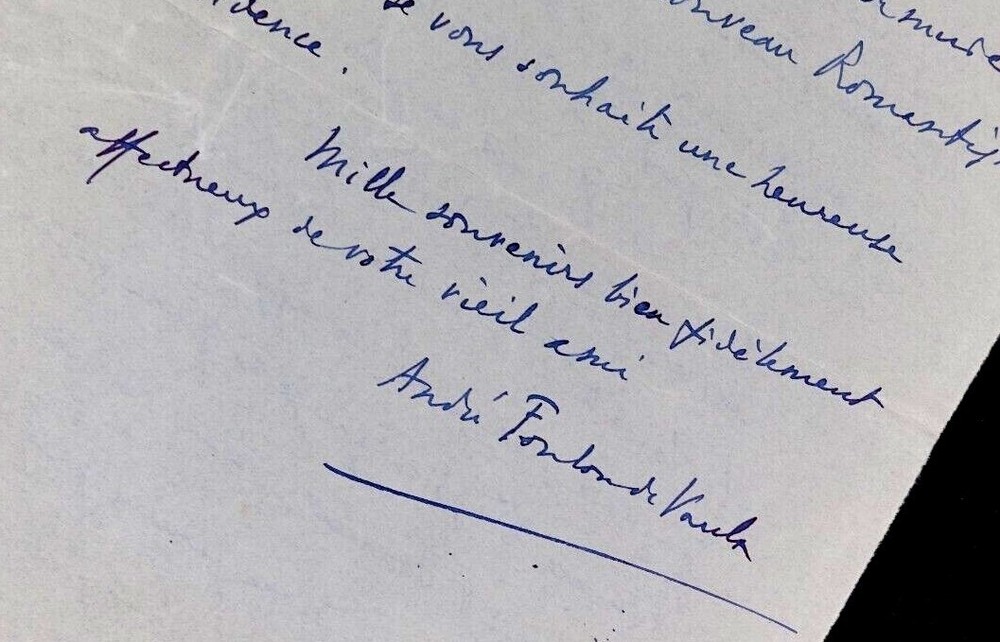 nouveau Romantis
se vous souhaite une heureuse
idence.
Mille souvenirs bien fidèlement
affectueux de votre vieil ami
André Foulon de Vaulx